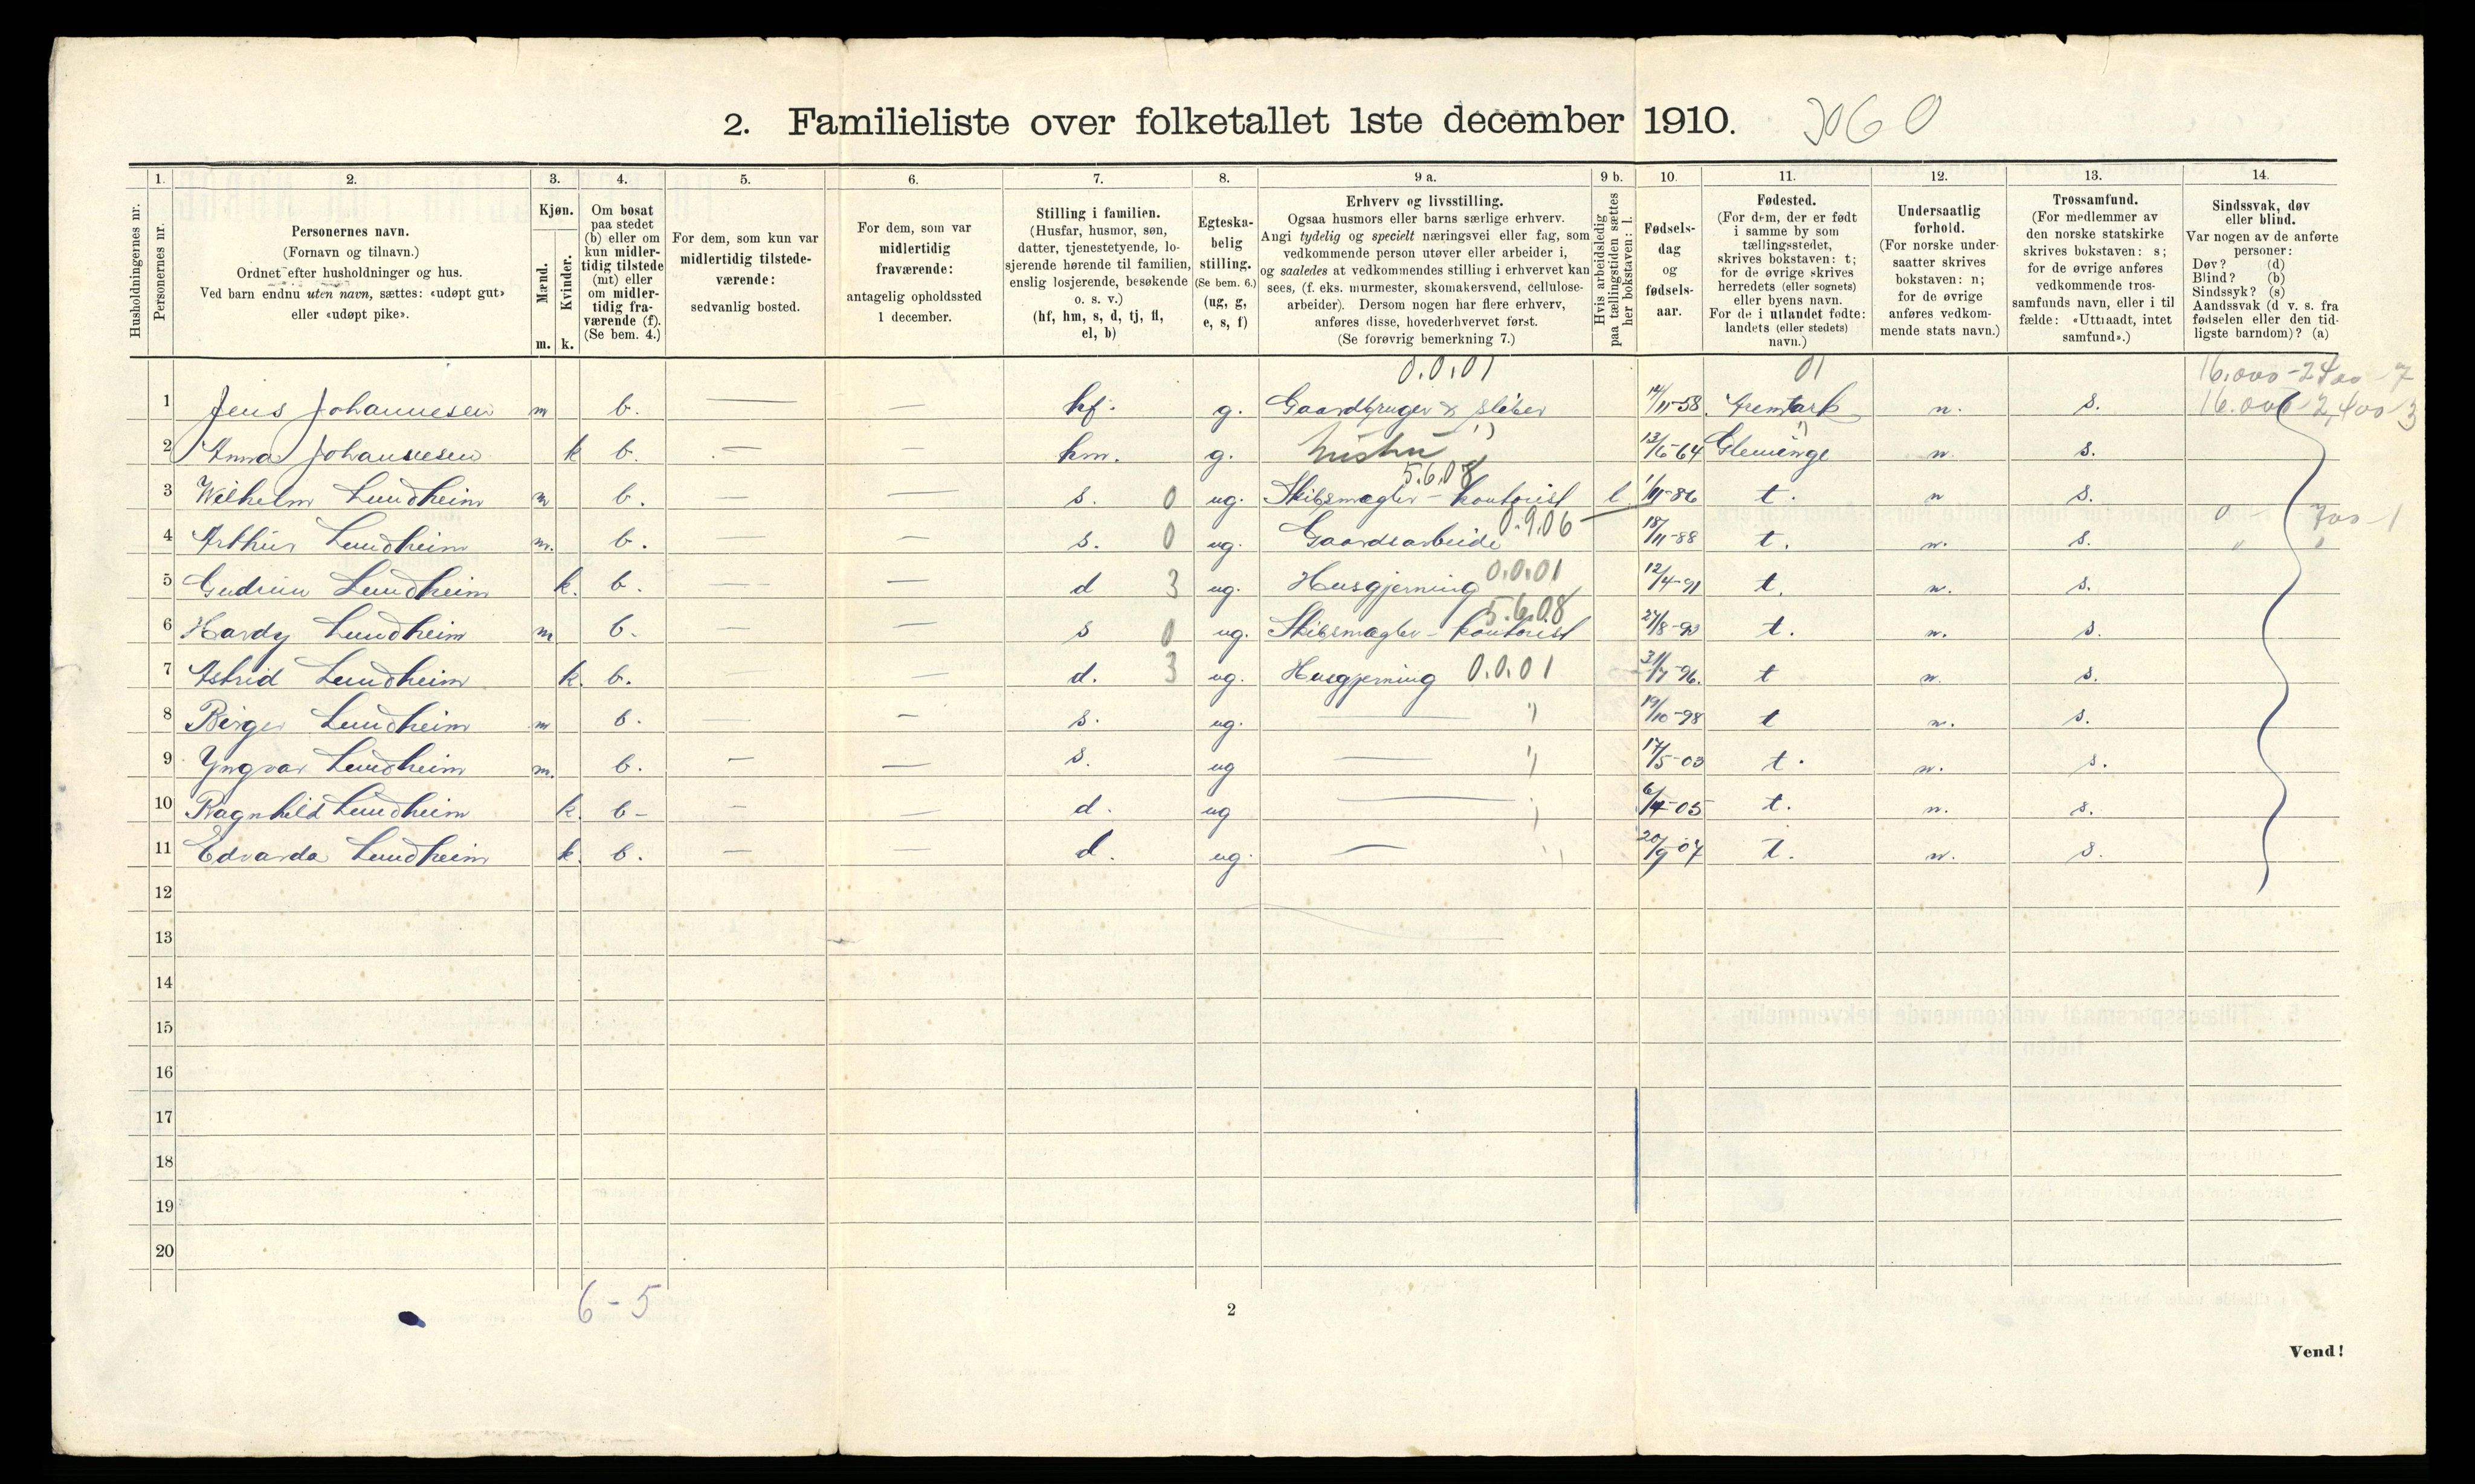 2. Familieliste over folketallet 1ste december 1910. 3060
Husholdningernes nr.
1. Personernes nr.
2. Personernes navn.
(Fornavn og tilnavn.)
Ordnet efter husholdninger og hus.
Ved barn endnu uten navn, sættes: «udøpt gut»
eller «udøpt pike».
3. Kjøn.
Mænd. m.
Kvinder. k.
4. Om bosat
paa stedet
(b) eller om
kun midler-
tidig tilstede
(mt) eller
om midler-
tidig fra-
værende (f).
(Se bem. 4.)
5. For dem, som kun var
midlertidig tilstede-
værende:
sedvanlig bosted.
6. For dem, som var
midlertidig
fraværende:
antagelig opholdssted
1 december.
7. Stilling i familien.
(Husfar, husmor, søn,
datter, tjenestetyende, lo-
sjerende hørende til familien,
enslig losjerende, besøkende
o. s. v.)
(hf, hm, s, d, tj, fl,
el, b)
8. Egteska-
belig
stilling.
(Se bem. 6.)
(ug, g,
e, s, f)
9 a. Erhverv og livsstilling.
Ogsaa husmors eller barns særlige erhverv.
Angi tydelig og specielt næringsvei eller fag, som
vedkommende person utøver eller arbeider i,
og saaledes at vedkommendes stilling i erhvervet kan
sees, (f. eks. murmester, skomakersvend, cellulose-
arbeider). Dersom nogen har flere erhverv,
anføres disse, hovederhvervet først.
(Se forøvrig bemerkning 7.)
9 b. Hvis arbeidsledig
paa tællingstiden sættes
her bokstaven: l.
10. Fødsels-
dag
og
fødsels-
aar.
11. Fødested.
(For dem, der er født
i samme by som
tællingsstedet,
skrives bokstaven: t;
for de øvrige skrives
herredets (eller sognets)
eller byens navn.
For de i utlandet fødte:
landets (eller stedets)
navn.)
12. Undersaatlig
forhold.
(For norske under-
saatter skrives
bokstaven: n;
for de øvrige
anføres vedkom-
mende stats navn.)
13. Trossamfund.
(For medlemmer av
den norske statskirke
skrives bokstaven: s;
for de øvrige anføres
vedkommende tros-
samfunds navn, eller i til-
fælde: «Uttraadt, intet
samfund».)
14. Sindssvak, døv
eller blind.
Var nogen av de anførte
personer:
Døv? (d)
Blind? (b)
Sindssyk? (s)
Aandssvak (d. v. s. fra
fødselen eller den tid-
ligste barndom)? (a)
0.0.01 01 16.000-2400-7
1 Jens Johannesen m b. — — hf. g. Gaardbruger & 14/11-58 Aremark n. s. 16.000 2,400 3
2 Anna Johannesen k b. — — hm. g. hustru 13/6-64 Glemminge n. s.
5.6.08
3 Wilhelm Lundheim m b. — — s. 0 ug. Skibsmægler-kontorist l. 1/11-86 t. n s.
0.9.06 700-1
4 Arthur Lundheim m. b. — — s. 0 ug. Gaardsarbeide 18/11-88 t. n. s.
5 Gudrun Lundheim k. b. — — d 3 ug. Husgjerning 0.0.01 12/4-91 t. n. s.
5.6.08
6 Hardy Lundheim m. b. — — s 0 ug. Skibsmægler-kontorist 27/8-93 t. n. s.
7 Astrid Lundheim k. b. — — d. 3 ug. Husgjerning 0.0.01 31/7-96. t n. s.
8 Birger Lundheim m b. — — s. ug. — 19/10-98 t n. s.
9 Yngvar Lundheim m. b. — — s. ug — 17/5-03 t. n. s.
10 Ragnhild Lundheim k. b- — — d. ug — 6/4-05 t. n. s.
11 Edvarda Lundheim k. b. — — d. ug. — 20/9-07 t. n. s.
12
13
14
15
16
17
18
19
20
6-5
2
Vend!